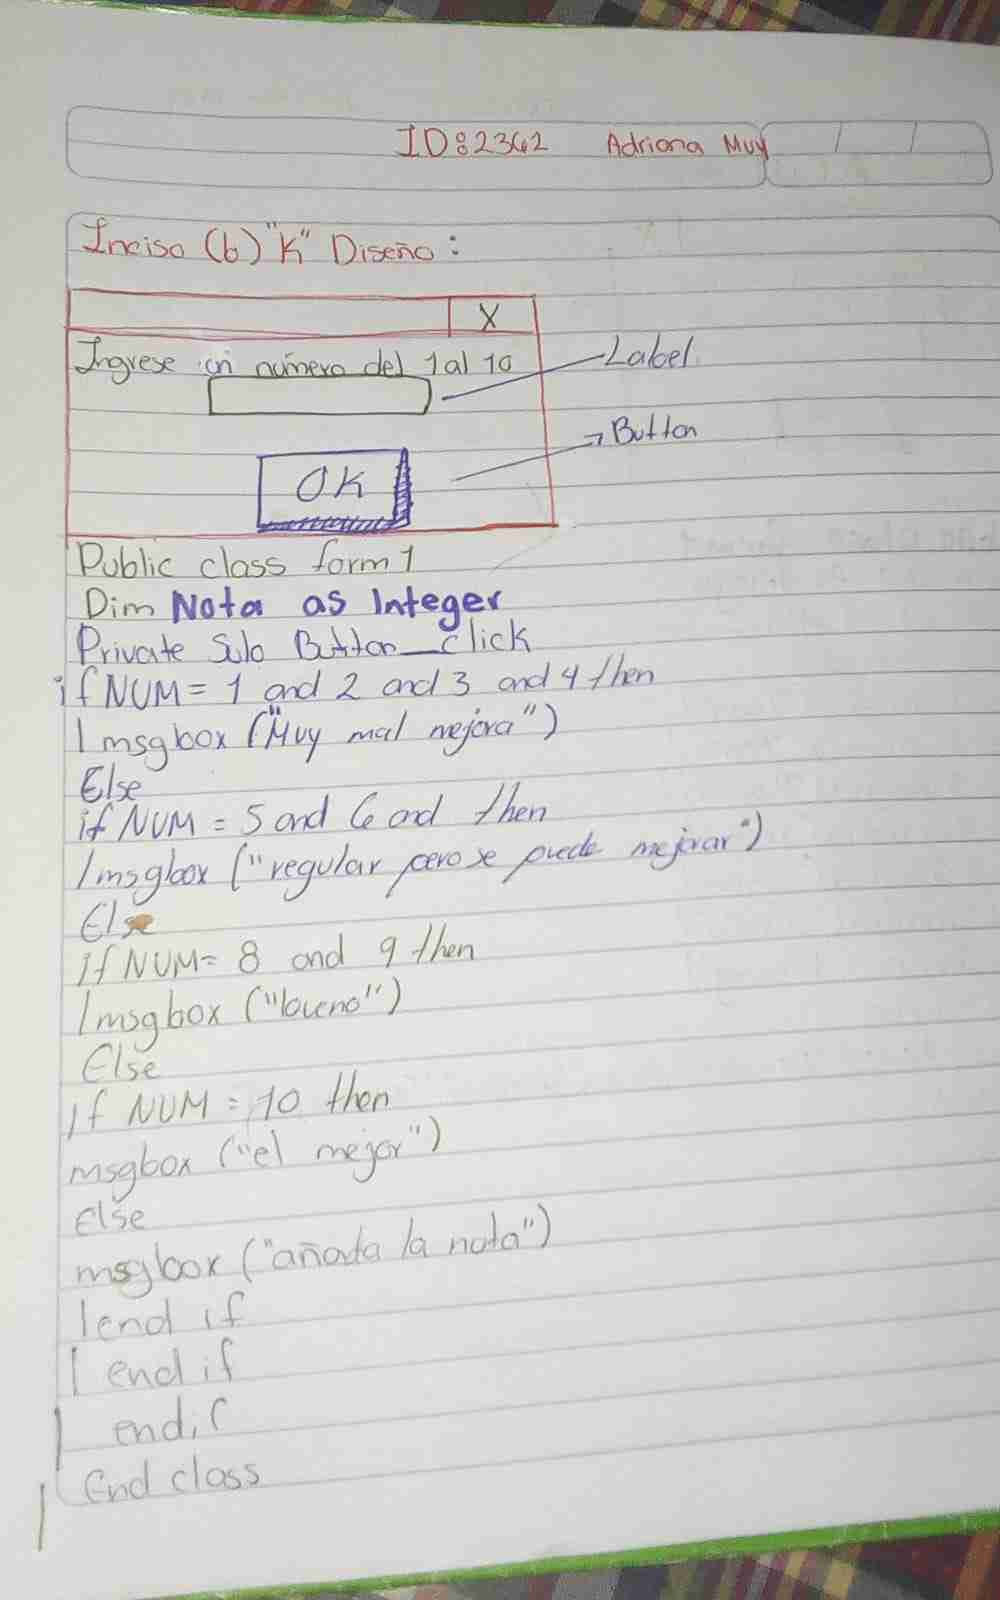 ID:2362 Adriana Muy
Inciso (b) "K" Diseño:
X
Ingrese un número del 1 al 10
Label
Button
OK
Public class form 1
Dim Nota as Integer
Private Sub Button_click
if NUM = 1 and 2 and 3 and 4 then
msgbox ("Muy mal mejora")
Else
if NUM = 5 and 6 and then
msgbox ("regular pero se puede mejorar")
Else
if NUM = 8 and 9 then
msgbox ("bueno")
Else
if NUM = 10 then
msgbox ("el mejor")
Else
msgbox ("añada la nota")
end if
end if
end if
End class